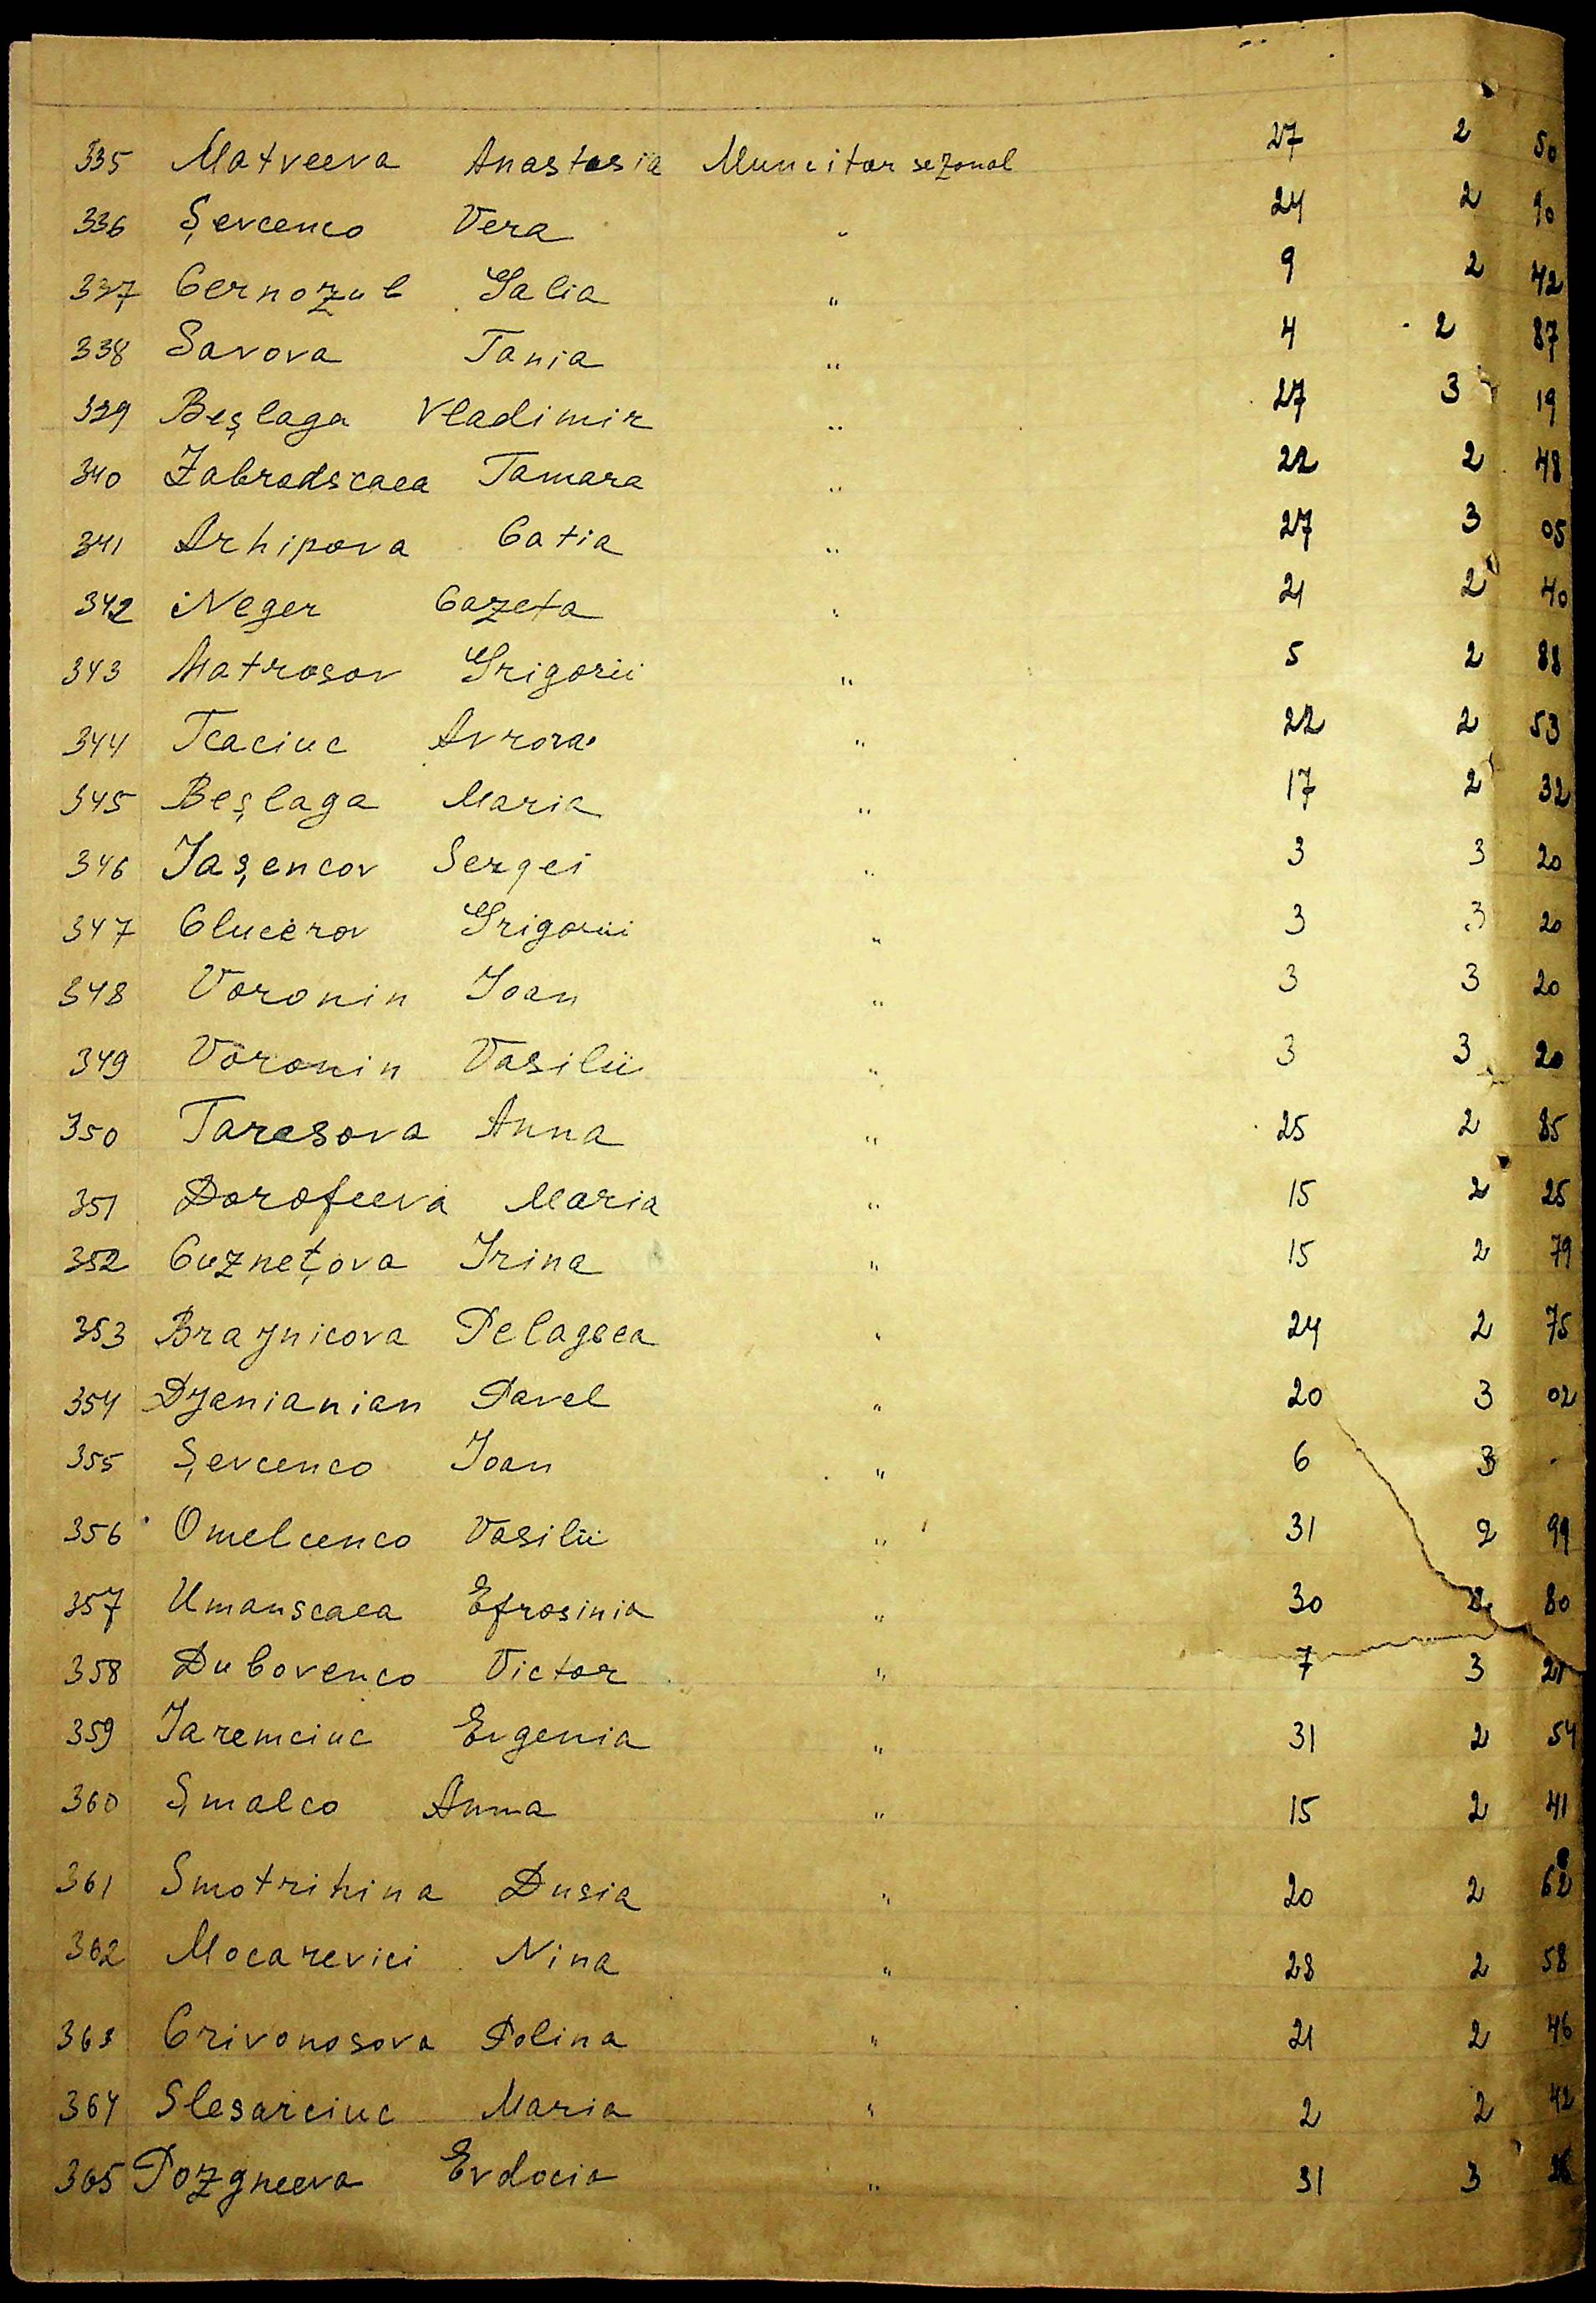 335 Matveeva Anastasia Muncitor sezonal 27 2 50
336 Șevcenco Vera " 24 2 90
337 Cernozub Galia " 9 2 42
338 Savova Tania " 4 2 87
339 Beșlaga Vladimir " 27 3 19
340 Zabrodscaea Tamara " 22 2 48
341 Arhipova Catia " 27 3 05
342 Neger Cazeta " 21 2 40
343 Matrosov Grigorii " 5 2 88
344 Tcaciuc Avrora " 22 2 53
345 Beșlaga Maria " 17 2 32
346 Iașencov Serghei " 3 3 20
347 Clucerov Grigorii " 3 3 20
348 Voronin Ioan " 3 3 20
349 Voronin Vasilii " 3 3 20
350 Tarasova Anna " 25 2 85
351 Dorofeeva Maria " 15 2 25
352 Cuznețova Irina " 15 2 79
353 Brajnicova Pelageea " 24 2 75
354 Djanianian Pavel " 20 3 02
355 Șevcenco Ioan " 6 3 -
356 Omelcenco Vasilii " 31 2 99
357 Umanscaea Efrosinia " 30 2 80
358 Dubovenco Victor " 7 3 21
359 Iaremciuc Evgenia " 31 2 54
360 Șmalco Anna " 15 2 41
361 Smotrihina Dusia " 20 2 62
362 Mocarevici Nina " 28 2 58
363 Crivonosova Polina " 21 2 46
364 Slesarciuc Maria " 2 2 42
365 Pozgneeva Evdocia " 31 3